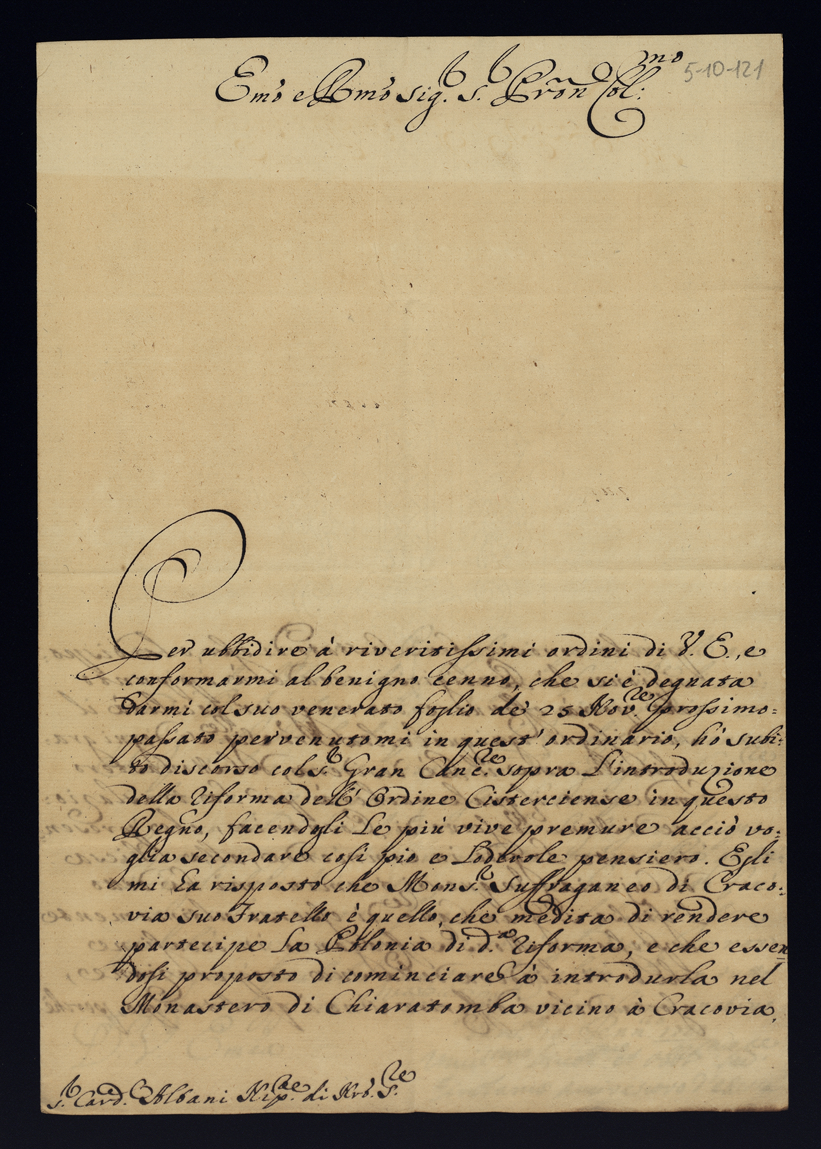 Emo e Rmo Sig.r S.r Pron Col:mo
5-10-121
Per ubbidire à riveritissimi ordini di V. E., e
conformarmi al benigno cenno, che si è degnata
darmi col suo venerato foglio de 25 Nov.re prossimo-
passato pervenutomi in quest' ordinario, hò subi-
to discorso col S.r Gran Canc.re sopra l'introduzione
della riforma dell' Ordine Cisterciense in questo
Regno, facendogli le più vive premure acciò vo-
glia secondare così pio e lodevole pensiero. Egli
mi ha risposto che Mons.r Suffraganeo di Craco-
via suo Fratello è quello, che medita di rendere
partecipe la Polonia di d.a riforma, e che essen-
dosi proposto di cominciare à introdurla nel
Monastero di Chiaratomba vicino à Cracovia,
S.r Card. Albani Nip.te di Nro S.re